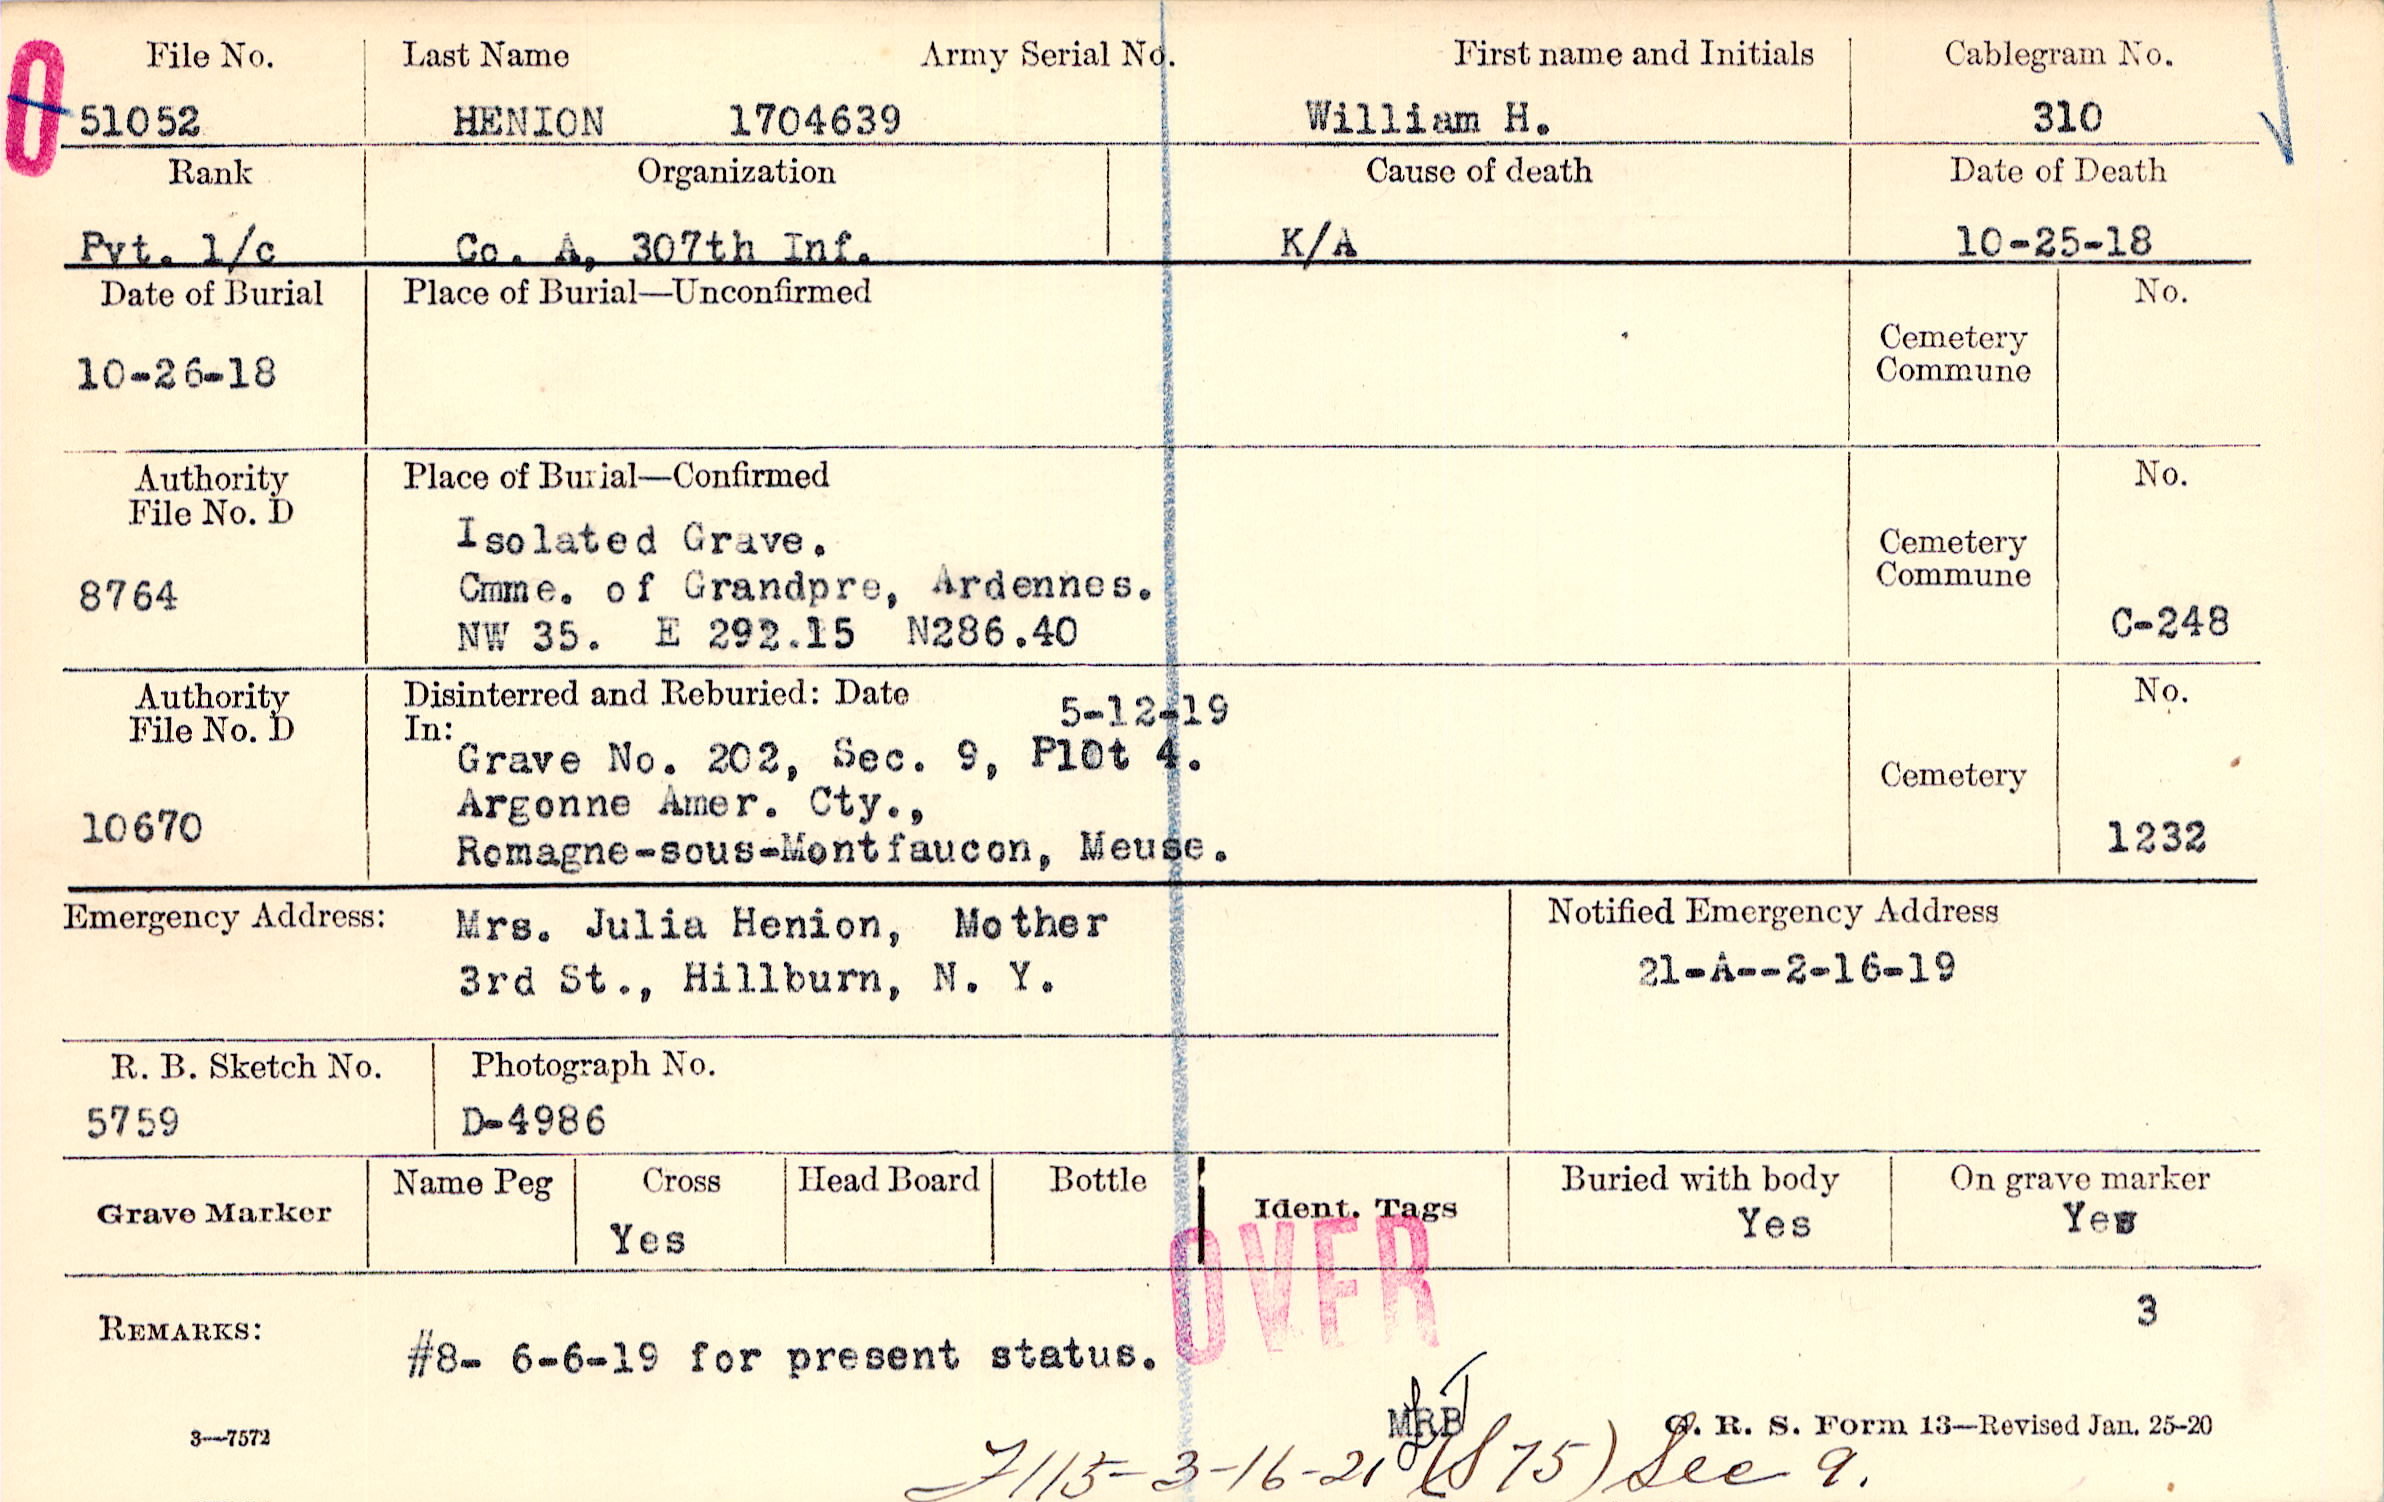 O
File No. Last Name Army Serial No. First name and Initials Cablegram No.
51052 HENION 1704639 William H. 310
Rank Organization Cause of death Date of Death
Pvt. 1/c Co. A, 307th Inf. K/A 10-25-18
Date of Burial Place of Burial—Unconfirmed No.
Cemetery
Commune
10-26-18
Authority Place of Burial—Confirmed No.
File No. D
Isolated Grave.
Cemetery
Commune
8764 Cmme. of Grandpre, Ardennes.
NW 35. E 292.15 N286.40 C-248
Authority Disinterred and Reburied: Date 5-12-19 No.
File No. D In:
Grave No. 202, Sec. 9, Plot 4.
Cemetery
Argonne Amer. Cty.,
10670 Romagne-sous-Montfaucon, Meuse. 1232
Emergency Address: Mrs. Julia Henion, Mother Notified Emergency Address
3rd St., Hillburn, N. Y. 21-A--2-16-19
R. B. Sketch No. Photograph No.
5759 D-4986
Grave Marker Name Peg Cross Head Board Bottle Ident. Tags Buried with body On grave marker
Yes Yes Yes
OVER
3
REMARKS: #8- 6-6-19 for present status.
MRB
3—7572 G. R. S. Form 13—Revised Jan. 25-20
7115-3-16-21 (S 75) See 9.